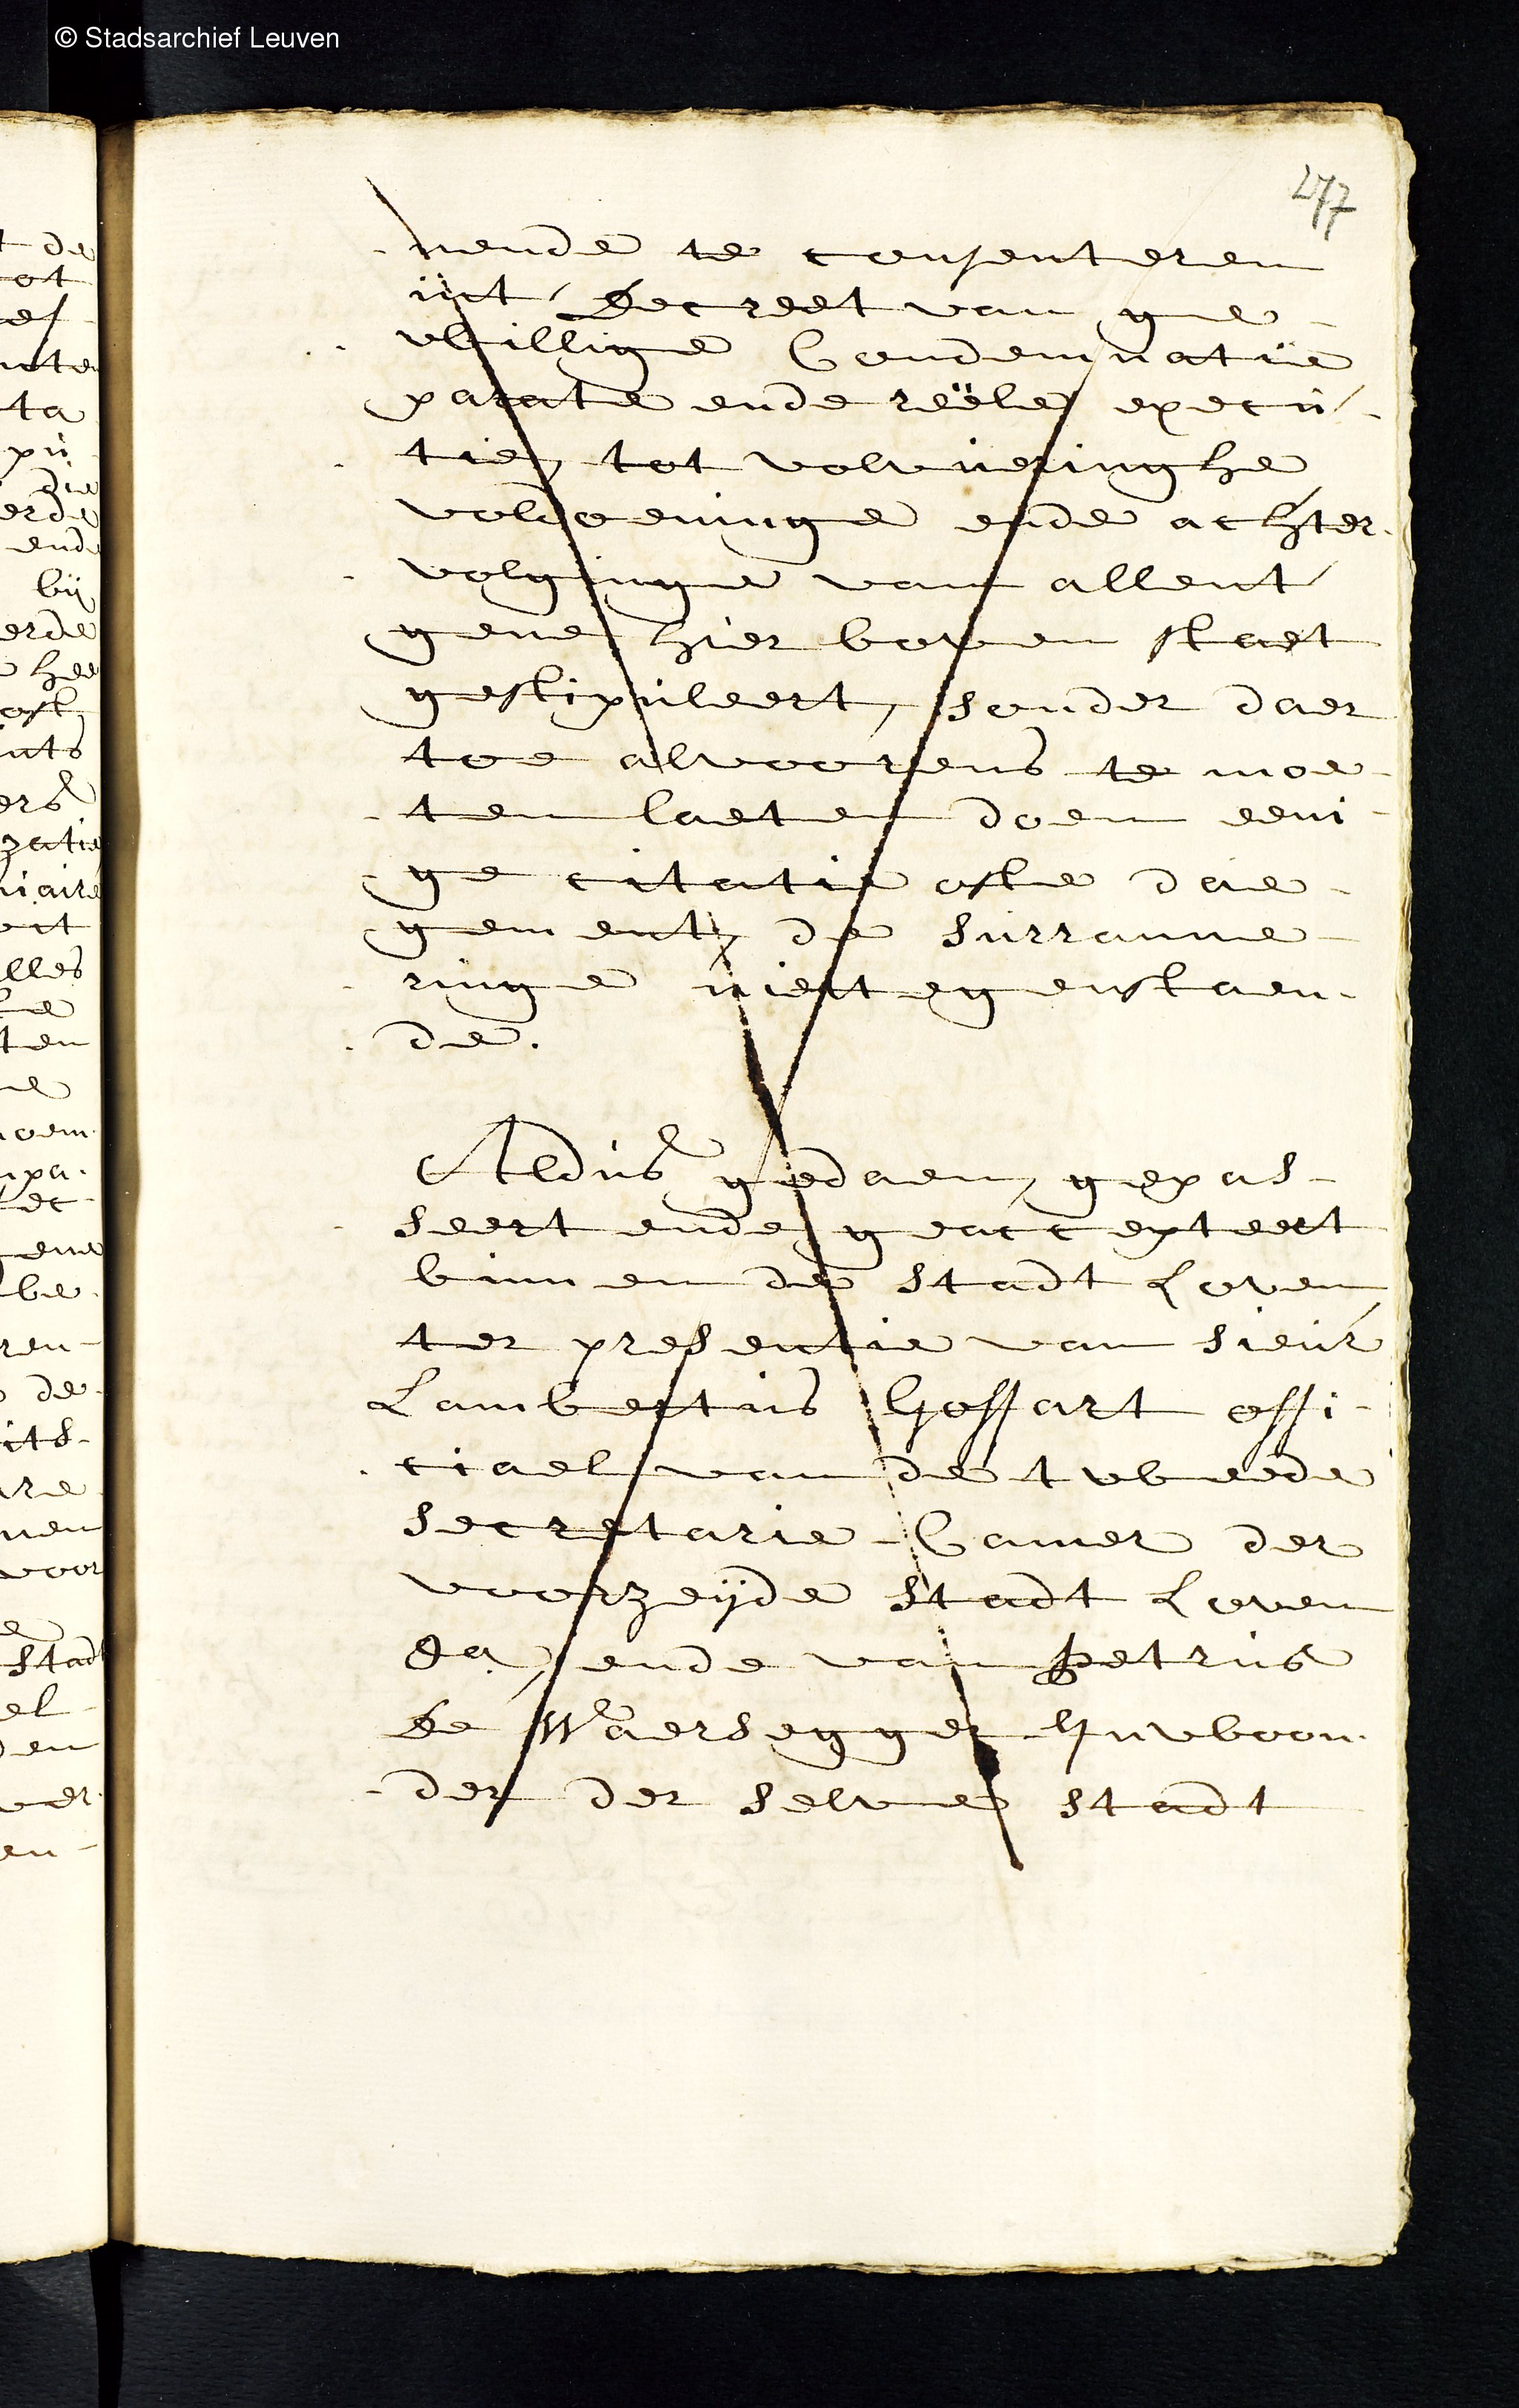 © Stadsarchief Leuven
277
nende te consenteren
int decreet van ge-
willige Condemnatie
parate ende reële execu-
tie, tot volvueringhe
voldoeninge ende achter-
volginge van allent
gene hier boven staet
gestipuleert, sonder daer
toe alvoorens te moe-
ten laeten doen eeni-
ge citatie ofte dae-
gement, de surranne-
ringe niettegenstaen-
de.
Aldus gedaen, gepas-
seert ende geaccepteert
binnen de stadt Loven
ter presentie van sieur
Lambertus Goffart offi-
ciael van de tweede
secretarie-Camer der
voorzeyde stadt Loven
ende van Petrus
De Waersegger Inwoon-
der der selve stadt